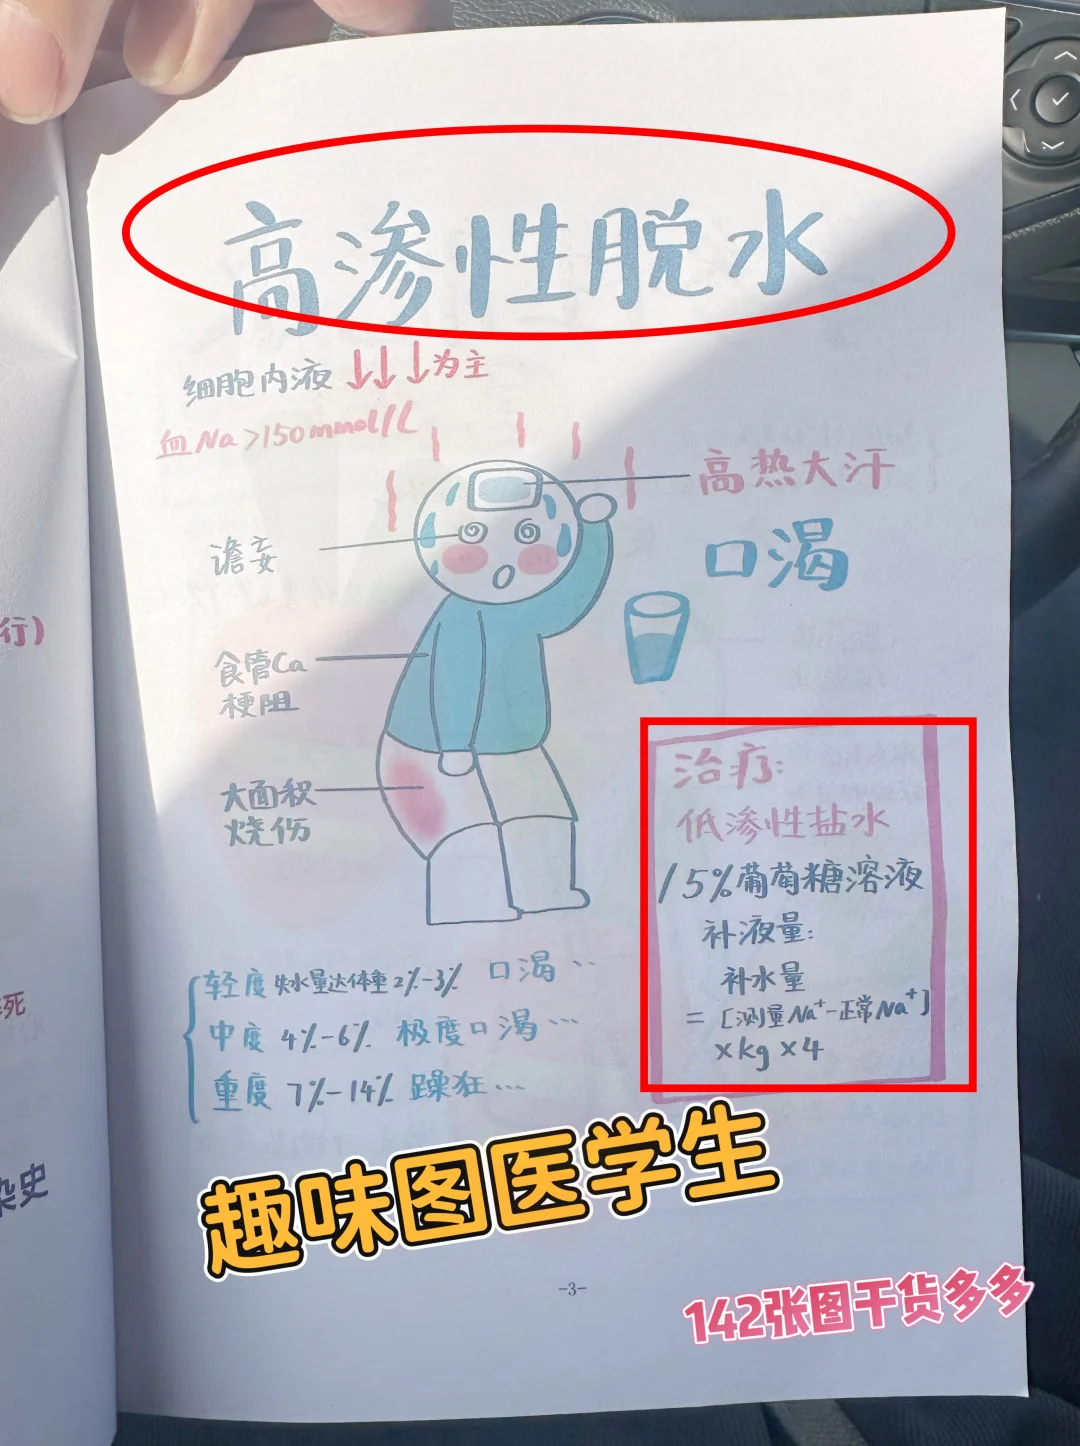 高渗性脱水
细胞内液↓↓↓为主
血Na>150mmol/L
高热大汗
口渴
谵妄
食管Ca
梗阻
大面积
烧伤
治疗:
低渗性盐水
/5%葡萄糖溶液
补液量:
补水量
=[测量Na⁺-正常Na⁺]
×kg×4
轻度 失水量达体重2%-3% 口渴…
中度 4%-6% 极度口渴…
重度 7%-14% 躁狂…
趣味图医学生
-3-
142张图干货多多
行)
死
染史